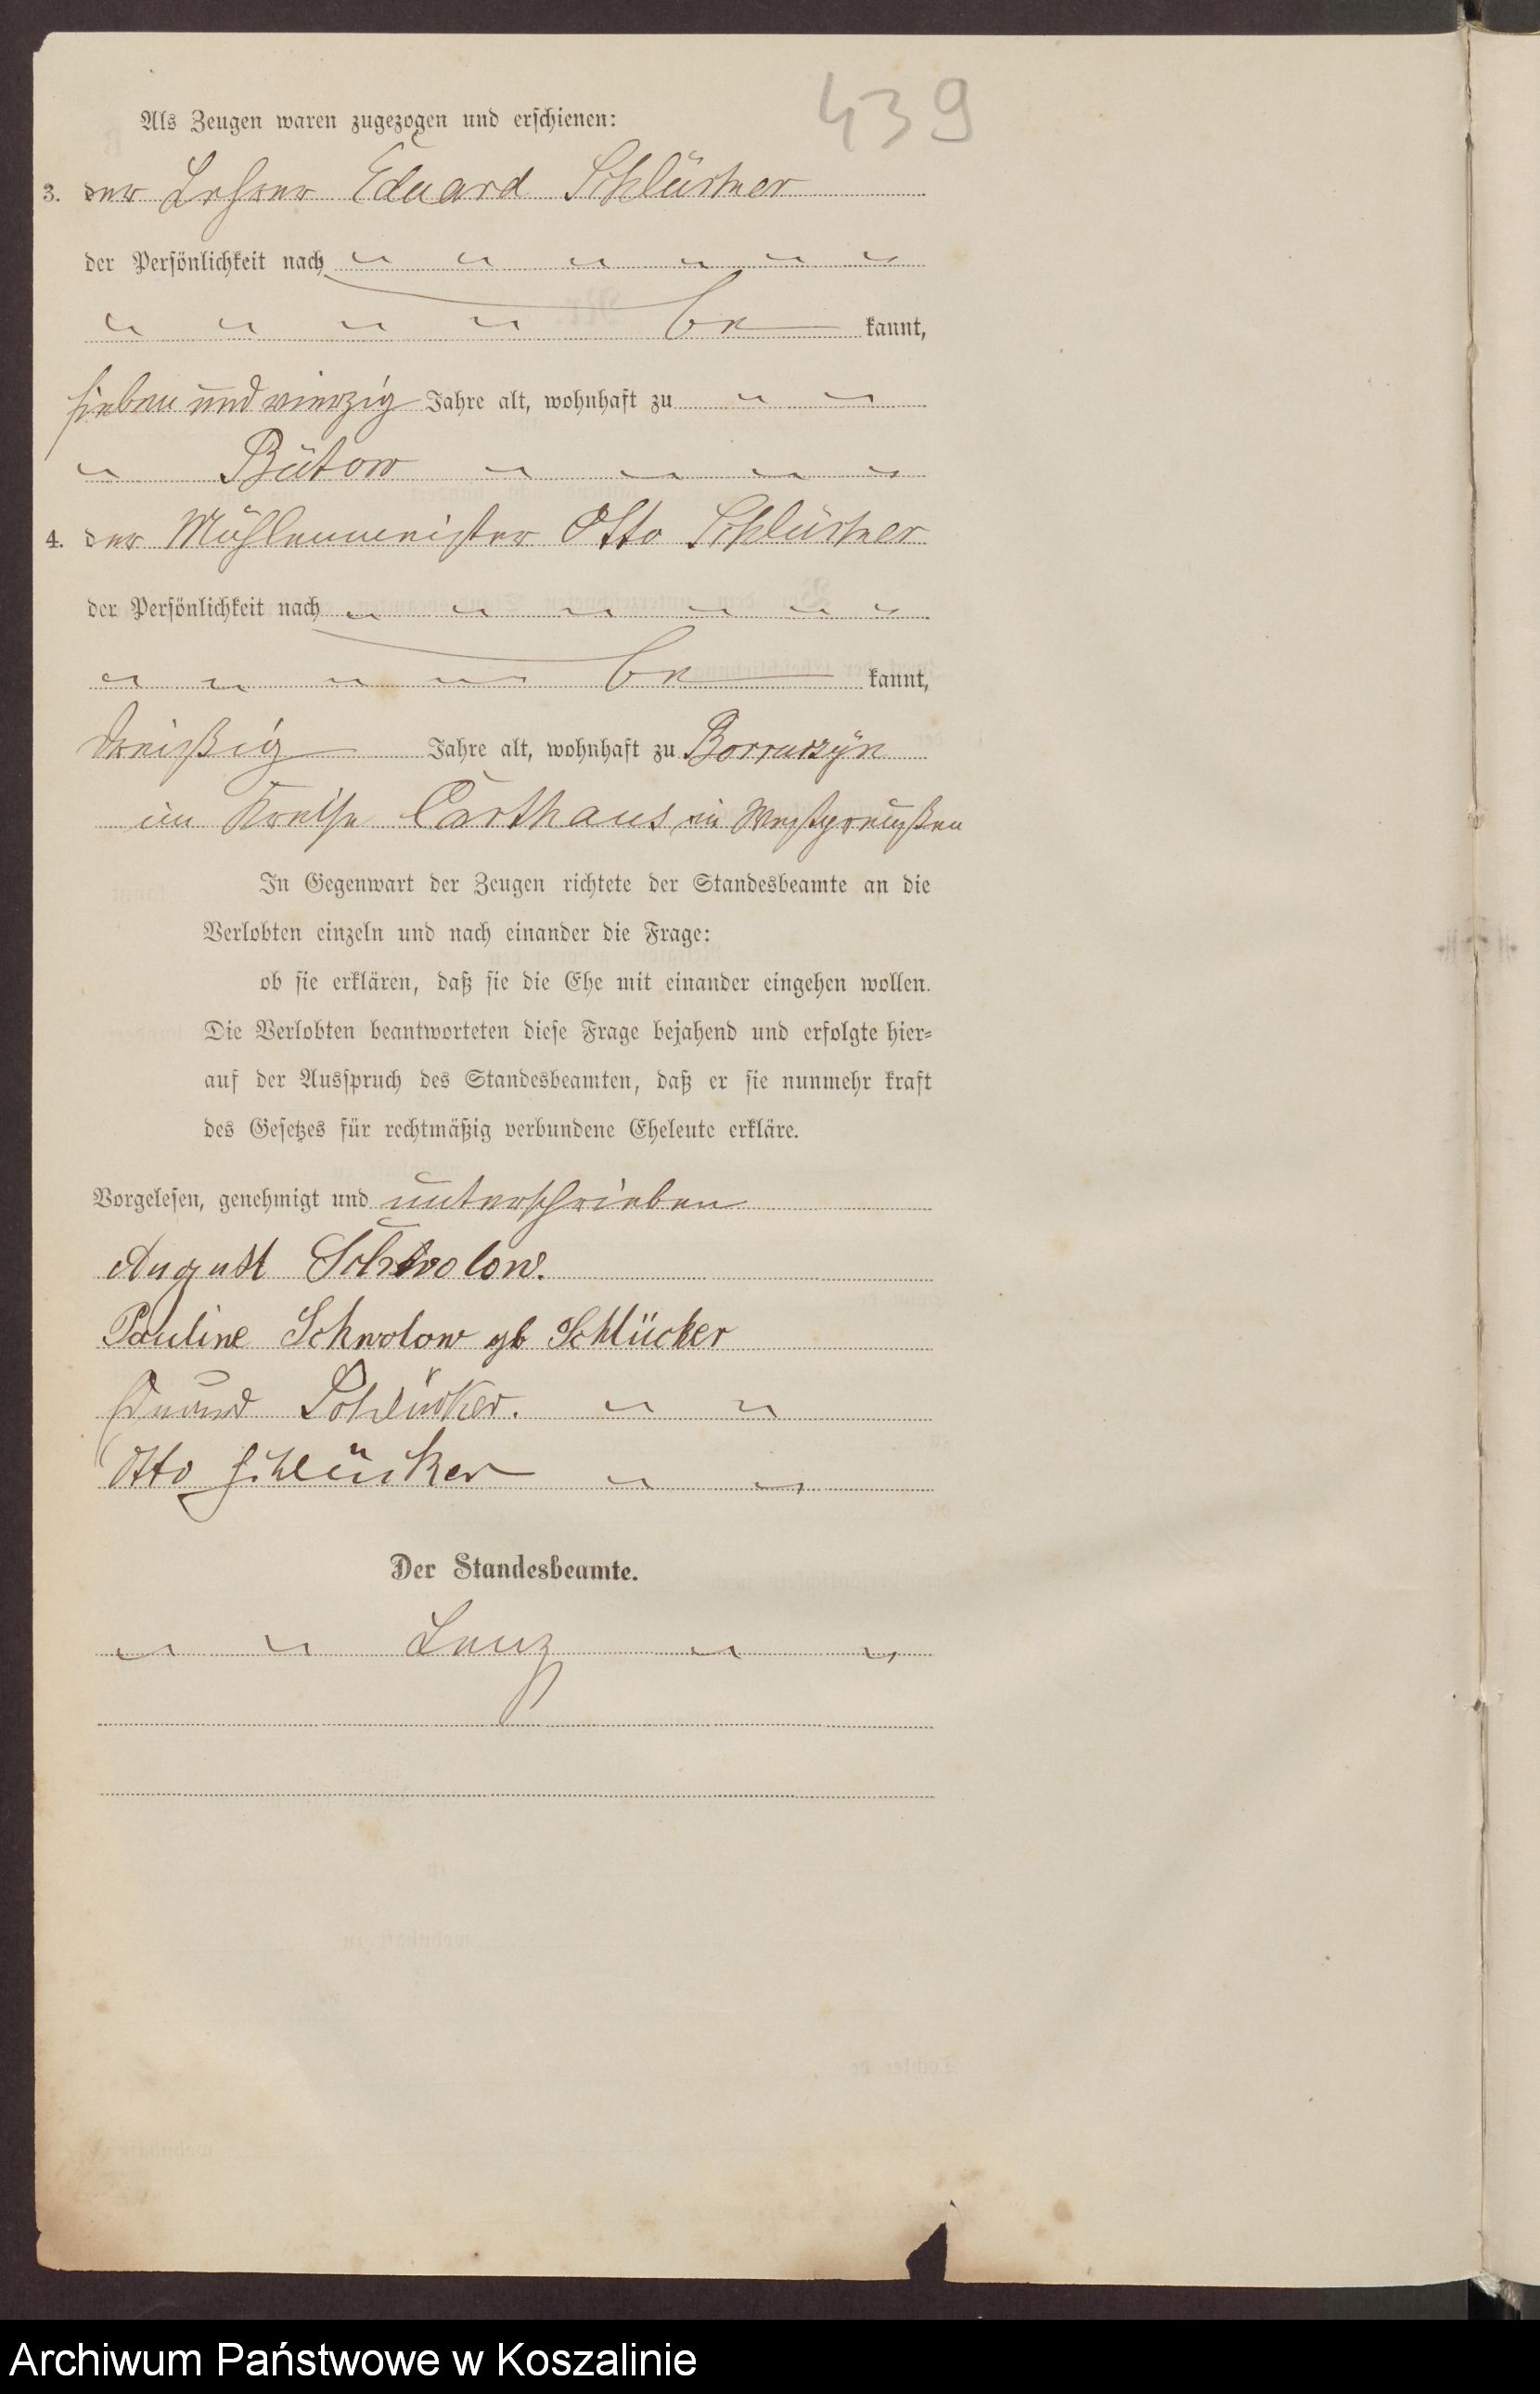 439
Als Zeugen waren zugezogen und erschienen:
3. der Lehrer Eduard Schlücker
der Persönlichkeit nach
be kannt,
sieben und vierzig Jahre alt, wohnhaft zu
Bütow
4. der Mühlenmeister Otto Schlücker
der Persönlichkeit nach
be kannt,
dreißig Jahre alt, wohnhaft zu
im Kreise Carthaus in Westpreußen
In Gegenwart der Zeugen richtete der Standesbeamte an die
Verlobten einzeln und nach einander die Frage:
ob sie erklären, daß sie die Ehe mit einander eingehen wollen.
Die Verlobten beantworteten diese Frage bejahend und erfolgte hier-
auf der Ausspruch des Standesbeamten, daß er sie nunmehr kraft
des Gesetzes für rechtmäßig verbundene Eheleute erkläre.
Vorgelesen, genehmigt und unterschrieben
August Schwolow.
Pauline Schwolow gb Schlücker
Eduard Schlücker.
Otto Schlücker
Der Standesbeamte.
Lenz
Archiwum Państwowe w Koszalinie